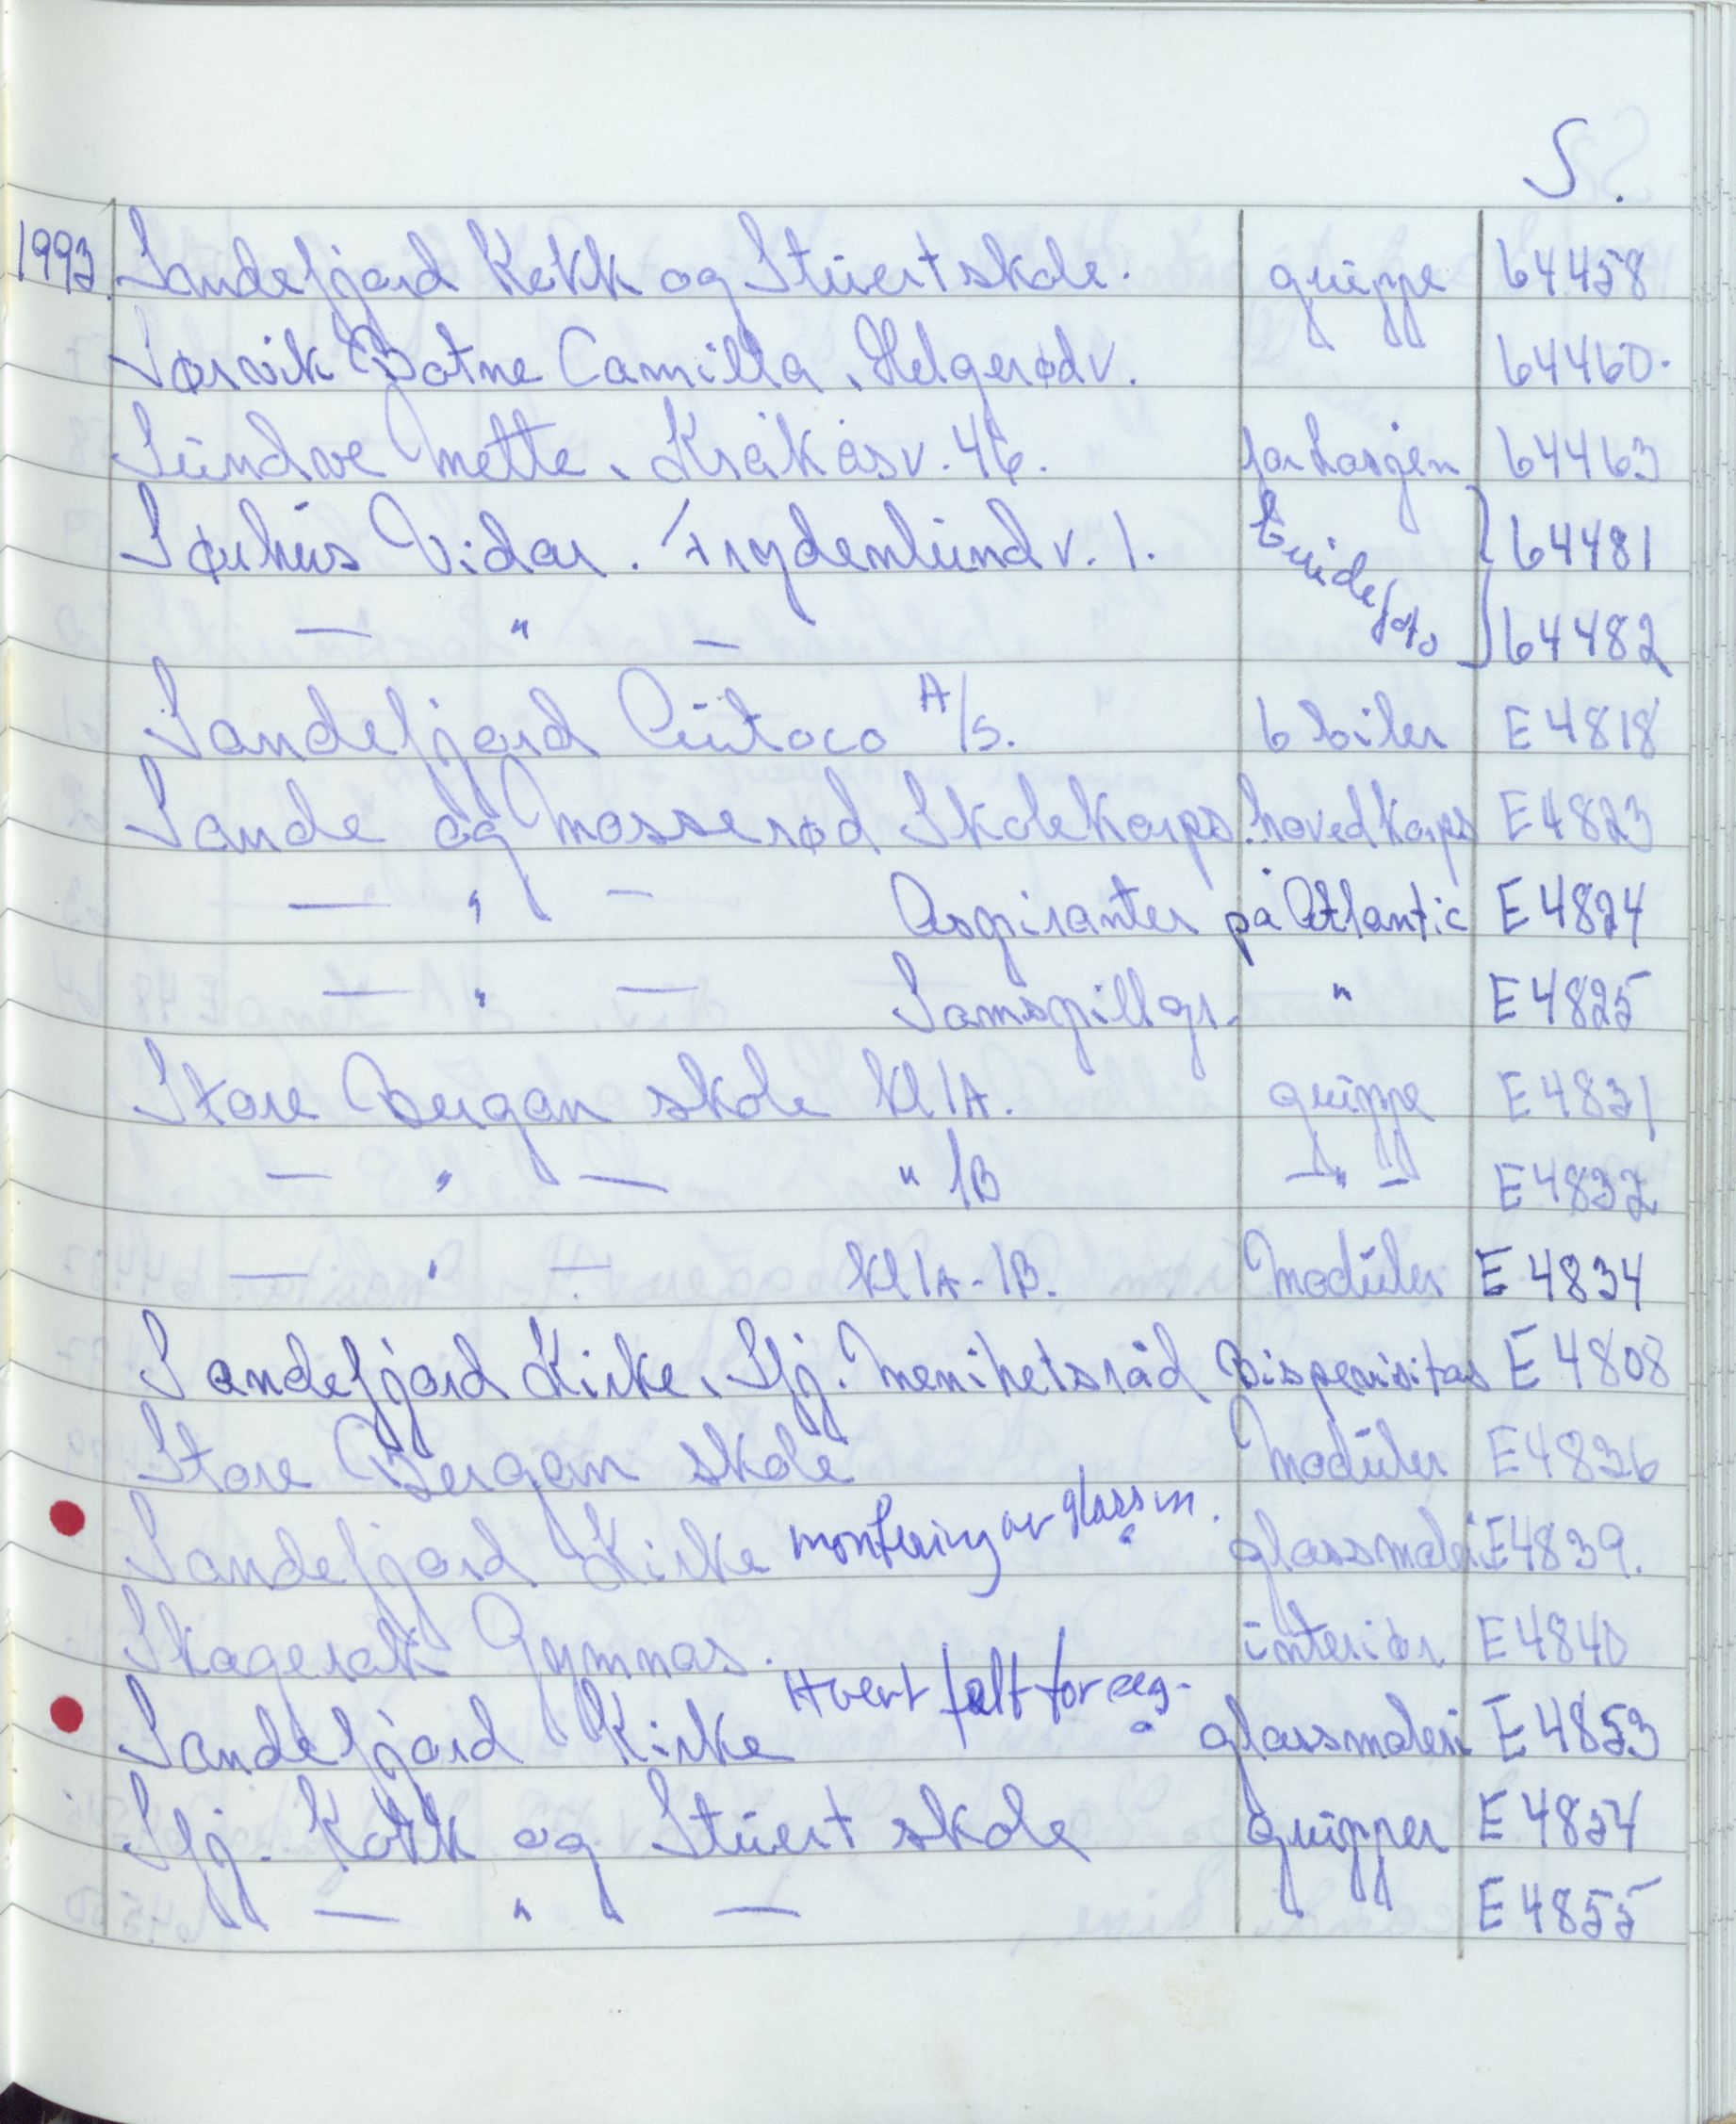 S.
1993. Sandefjord Kokk og Stuertskole. gruppe 64458
Sørvik Botne Camilla, Helgerødv. 64460.
Sundve Mette, Kråkåsv. 46. 64463
Sørhus Vidar. Frydenlundv. 1. Brudefoto 64481
— " — 64482
Sandefjord Autoco A/S. 6 biler E 4818
Sande og Mosserød Skolekorps. hovedkorps E 4823
— " — Aspiranter på Atlantic E 4824
— " — Samspillgr. " E 4825
Store Bergan skole kl 1A. gruppe E 4831
— " — " 1B — " — E 4832
— " — kl 1A-1B. Moduler E 4834
Sandefjord Kirke, Sfj. Menihetsråd Bispevisitas E 4808
Store Bergan skole Moduler E 4836
Sandefjord Kirke montering av glassm. glassmaleri E 4839.
Skagerak Gymnas. interiør E 4840
Sandefjord Kirke Hvert felt for seg. glassmaleri E 4853
Sfj. Kokk og Stuert skole grupper E 4854
— " — E 4855